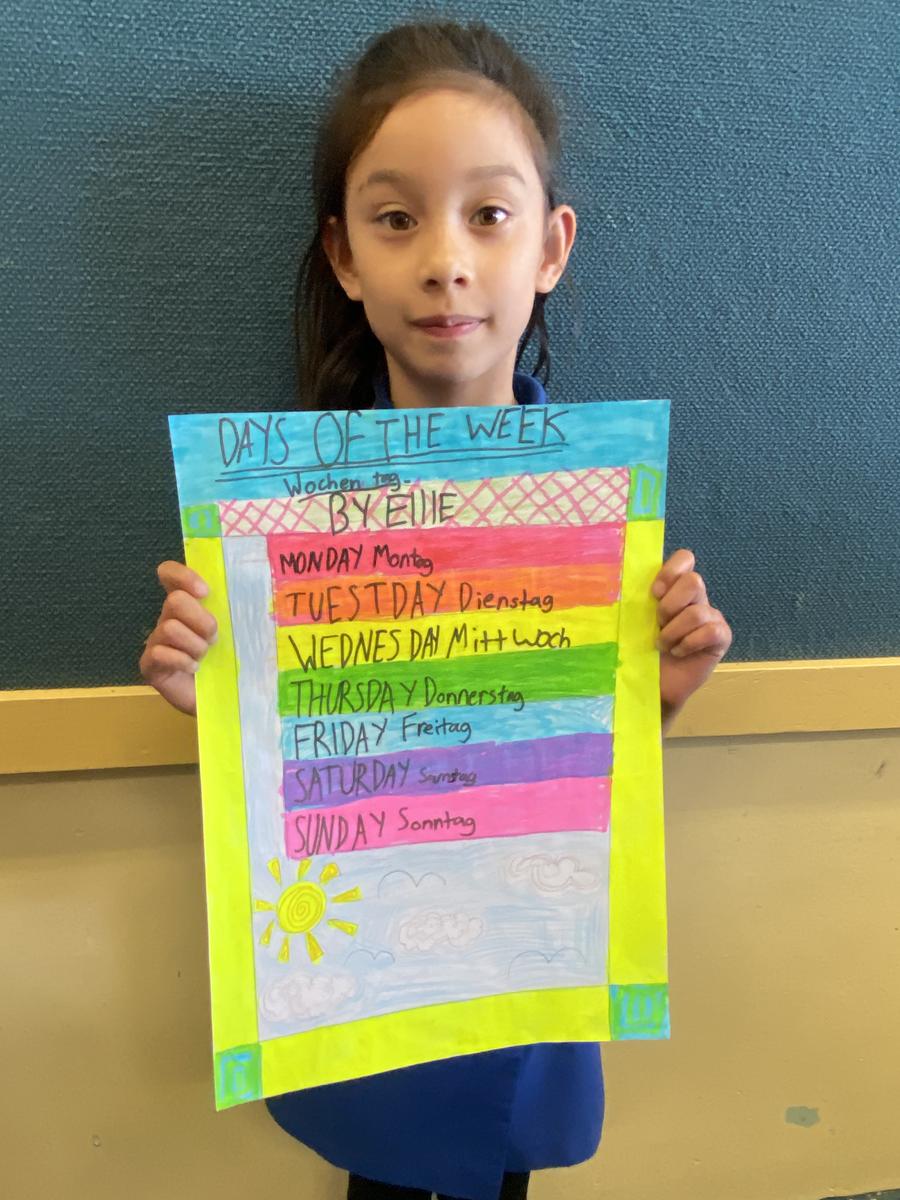 DAYS OF THE WEEK
Wochen tag.
BY EllIE
MONDAY Montag
TUESTDAY Dienstag
WEDNESDAY Mittwoch
THURSDAY Donnerstag
FRIDAY Freitag
SATURDAY Samstag
SUNDAY Sonntag